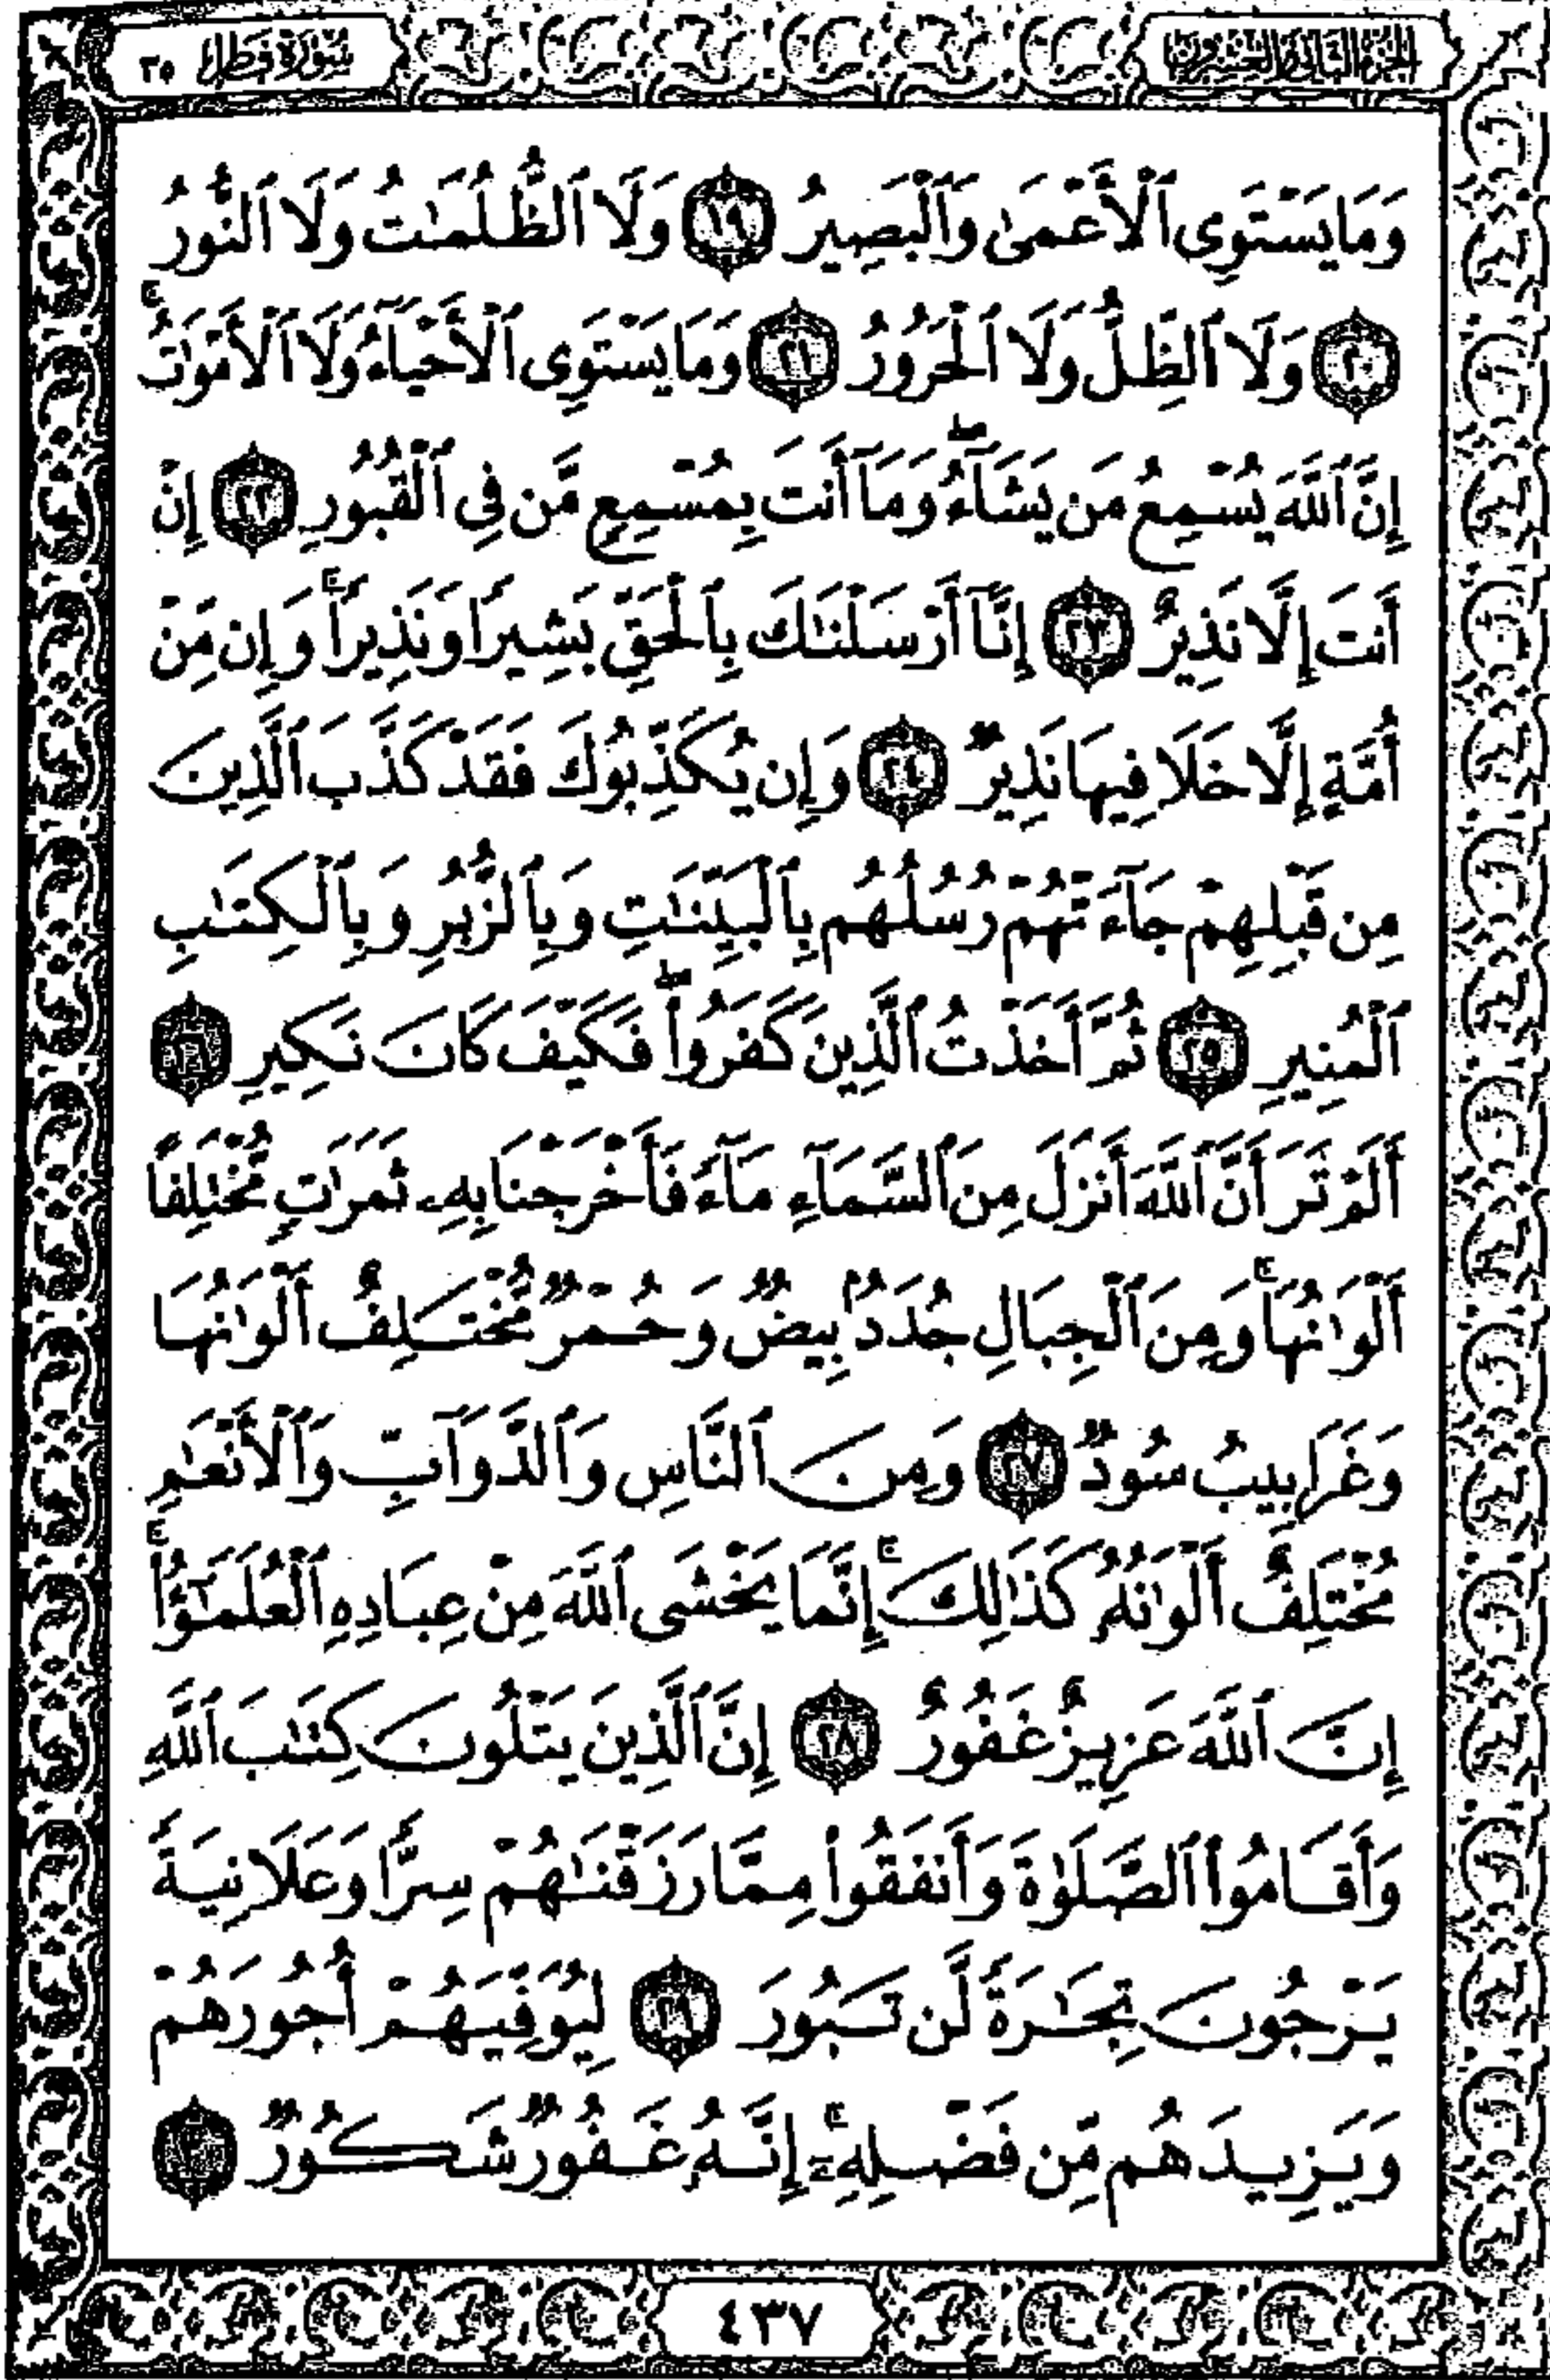 الجزء الثاني والعشرون
سورة فاطر ٣٥
وَمَا يَسْتَوِى ٱلْأَعْمَىٰ وَٱلْبَصِيرُ ١٩ وَلَا ٱلظُّلُمَٰتُ وَلَا ٱلنُّورُ
٢٠ وَلَا ٱلظِّلُّ وَلَا ٱلْحَرُورُ ٢١ وَمَا يَسْتَوِى ٱلْأَحْيَآءُ وَلَا ٱلْأَمْوَٰتُ ۚ
إِنَّ ٱللَّهَ يُسْمِعُ مَن يَشَآءُ ۖ وَمَآ أَنتَ بِمُسْمِعٍ مَّن فِى ٱلْقُبُورِ ٢٢ إِنْ
أَنتَ إِلَّا نَذِيرٌ ٢٣ إِنَّآ أَرْسَلْنَٰكَ بِٱلْحَقِّ بَشِيرًا وَنَذِيرًا ۚ وَإِن مِّنْ
أُمَّةٍ إِلَّا خَلَا فِيهَا نَذِيرٌ ٢٤ وَإِن يُكَذِّبُوكَ فَقَدْ كَذَّبَ ٱلَّذِينَ
مِن قَبْلِهِمْ جَآءَتْهُمْ رُسُلُهُم بِٱلْبَيِّنَٰتِ وَبِٱلزُّبُرِ وَبِٱلْكِتَٰبِ
ٱلْمُنِيرِ ٢٥ ثُمَّ أَخَذْتُ ٱلَّذِينَ كَفَرُوا۟ ۖ فَكَيْفَ كَانَ نَكِيرِ ٢٦
أَلَمْ تَرَ أَنَّ ٱللَّهَ أَنزَلَ مِنَ ٱلسَّمَآءِ مَآءً فَأَخْرَجْنَا بِهِۦ ثَمَرَٰتٍ مُّخْتَلِفًا
أَلْوَٰنُهَا ۚ وَمِنَ ٱلْجِبَالِ جُدَدٌۢ بِيضٌ وَحُمْرٌ مُّخْتَلِفٌ أَلْوَٰنُهَا
وَغَرَابِيبُ سُودٌ ٢٧ وَمِنَ ٱلنَّاسِ وَٱلدَّوَآبِّ وَٱلْأَنْعَٰمِ
مُخْتَلِفٌ أَلْوَٰنُهُۥ كَذَٰلِكَ ۗ إِنَّمَا يَخْشَى ٱللَّهَ مِنْ عِبَادِهِ ٱلْعُلَمَٰٓؤُا۟ ۗ
إِنَّ ٱللَّهَ عَزِيزٌ غَفُورٌ ٢٨ إِنَّ ٱلَّذِينَ يَتْلُونَ كِتَٰبَ ٱللَّهِ
وَأَقَامُوا۟ ٱلصَّلَوٰةَ وَأَنفَقُوا۟ مِمَّا رَزَقْنَٰهُمْ سِرًّا وَعَلَانِيَةً
يَرْجُونَ تِجَٰرَةً لَّن تَبُورَ ٢٩ لِيُوَفِّيَهُمْ أُجُورَهُمْ
وَيَزِيدَهُم مِّن فَضْلِهِۦٓ ۚ إِنَّهُۥ غَفُورٌ شَكُورٌ ٣٠
٤٣٧